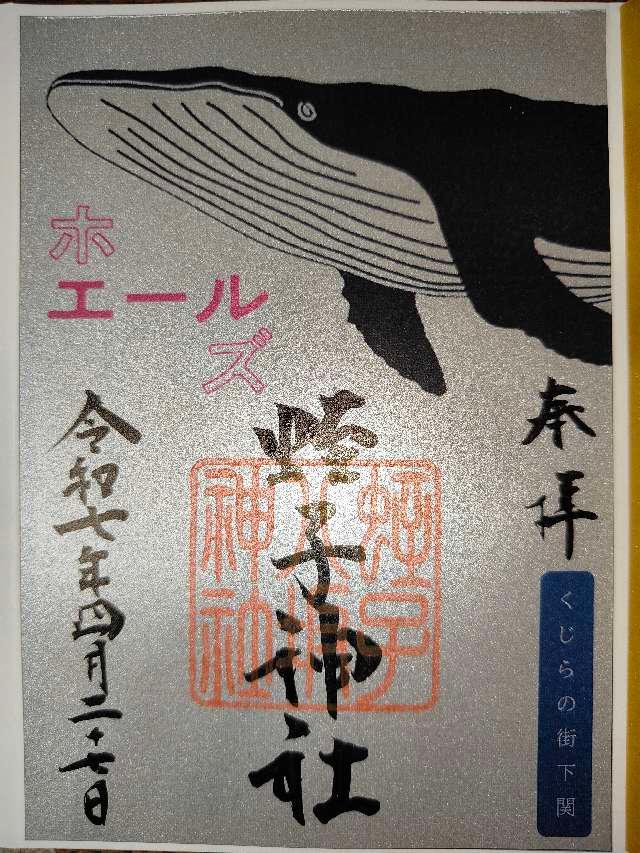 奉拝
くじらの街下関
蛭子神社
ホ
エール
ズ
令和七年四月二十七日